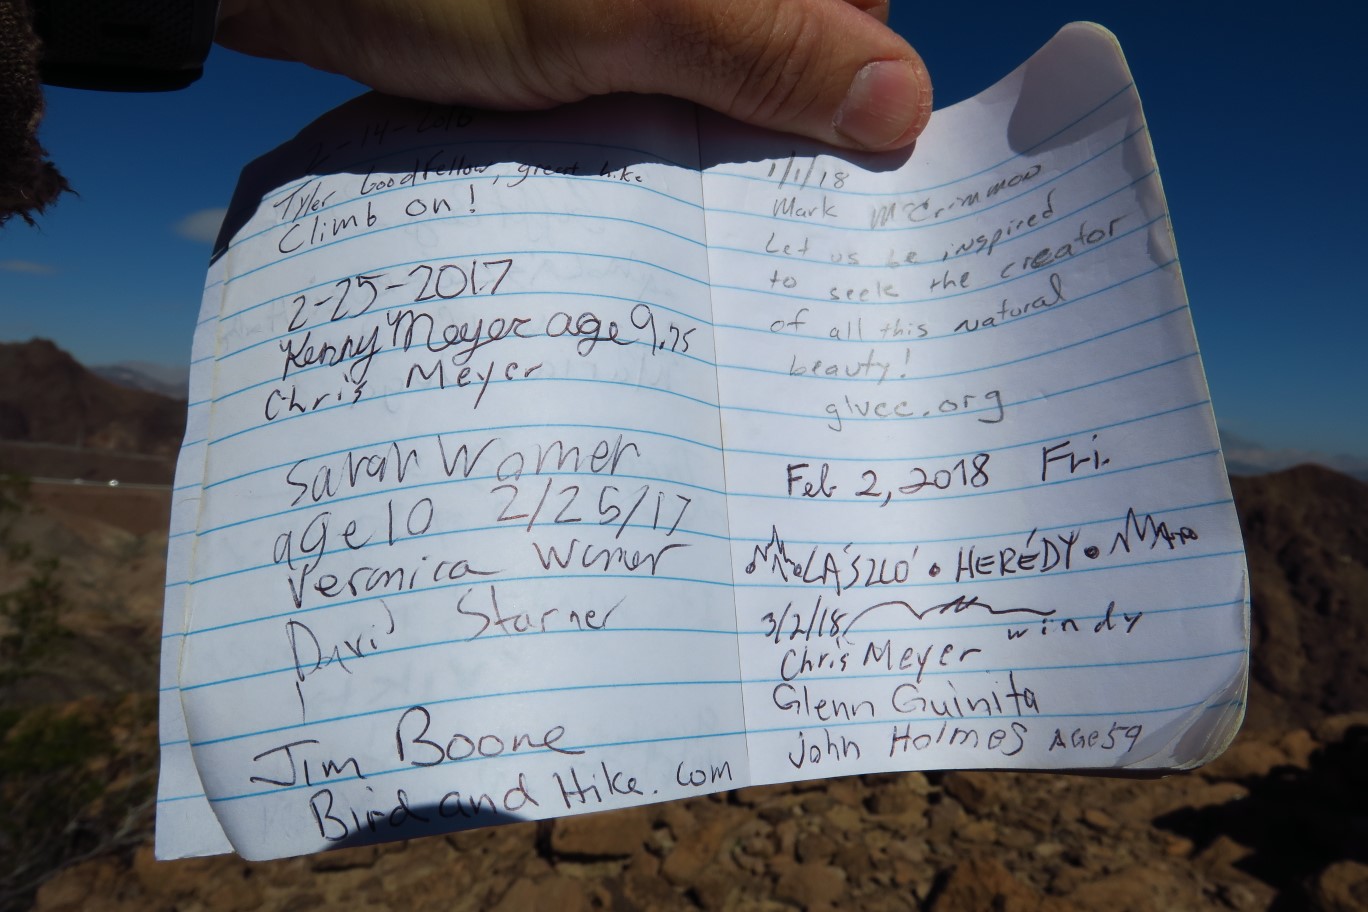 -14-2016
Tyler Goodfellow, great hike
Climb on!
2-25-2017
Kenny Meyer age 9.75
Chris Meyer
Sarah Womer
age 10 2/25/17
Veronica Womer
David Starner
Jim Boone
Bird and Hike.com
1/1/18
Mark McCrimmon
Let us be inspired
to seek the creator
of all this natural
beauty!
glvcc.org
Feb 2, 2018 Fri.
LÁSZLÓ • HERÉDY •
3/2/18 windy
Chris Meyer
Glenn Guinita
John Holmes AGE 59